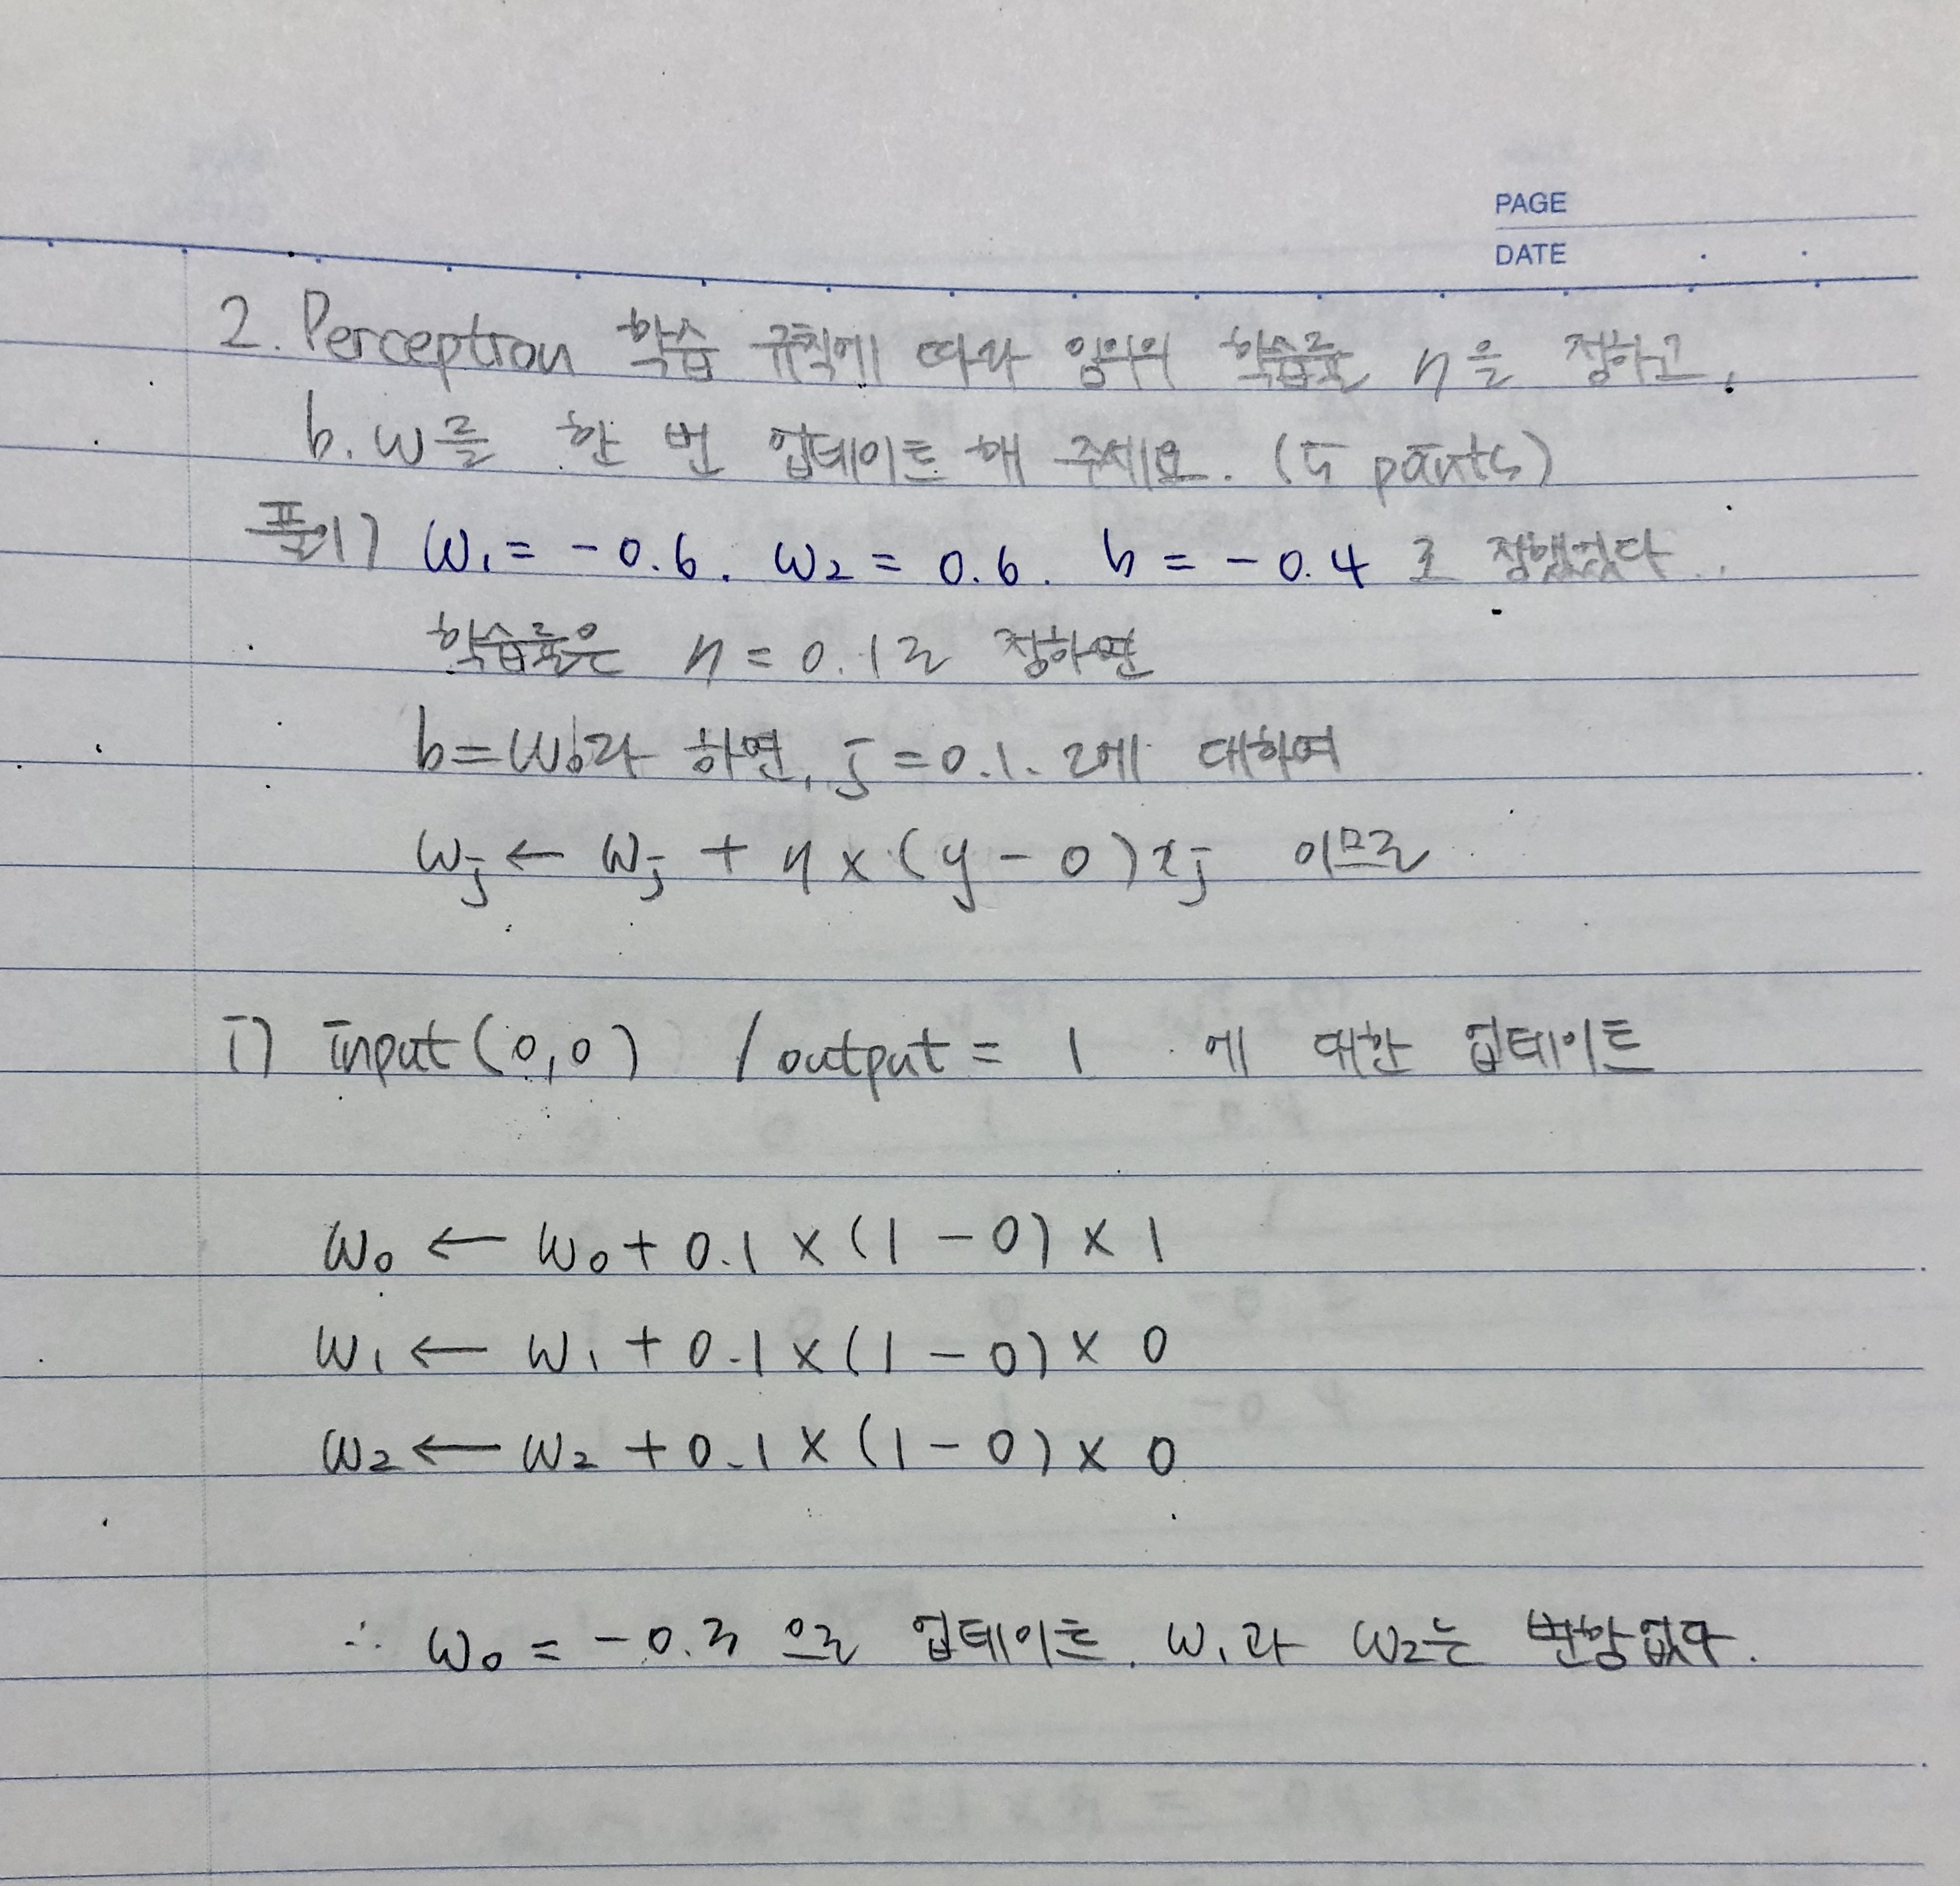 PAGE
DATE
2. Perceptron 학습 규칙에 따라 임의의 학습률 η을 정하고,
b, w를 한 번 업데이트 해 주세요. (5 points)
풀이) w₁ = -0.6, w₂ = 0.6, b = -0.4 로 정했었다.
학습률은 η = 0.1로 정하면
b = w₀라 하면, j = 0, 1, 2에 대하여
wⱼ ← wⱼ + η × (y - o) xⱼ 이므로
i) input (0,0) / output = 1 에 대한 업데이트
w₀ ← w₀ + 0.1 × (1 - 0) × 1
w₁ ← w₁ + 0.1 × (1 - 0) × 0
w₂ ← w₂ + 0.1 × (1 - 0) × 0
∴ w₀ = -0.3 으로 업데이트, w₁과 w₂는 변함없다.